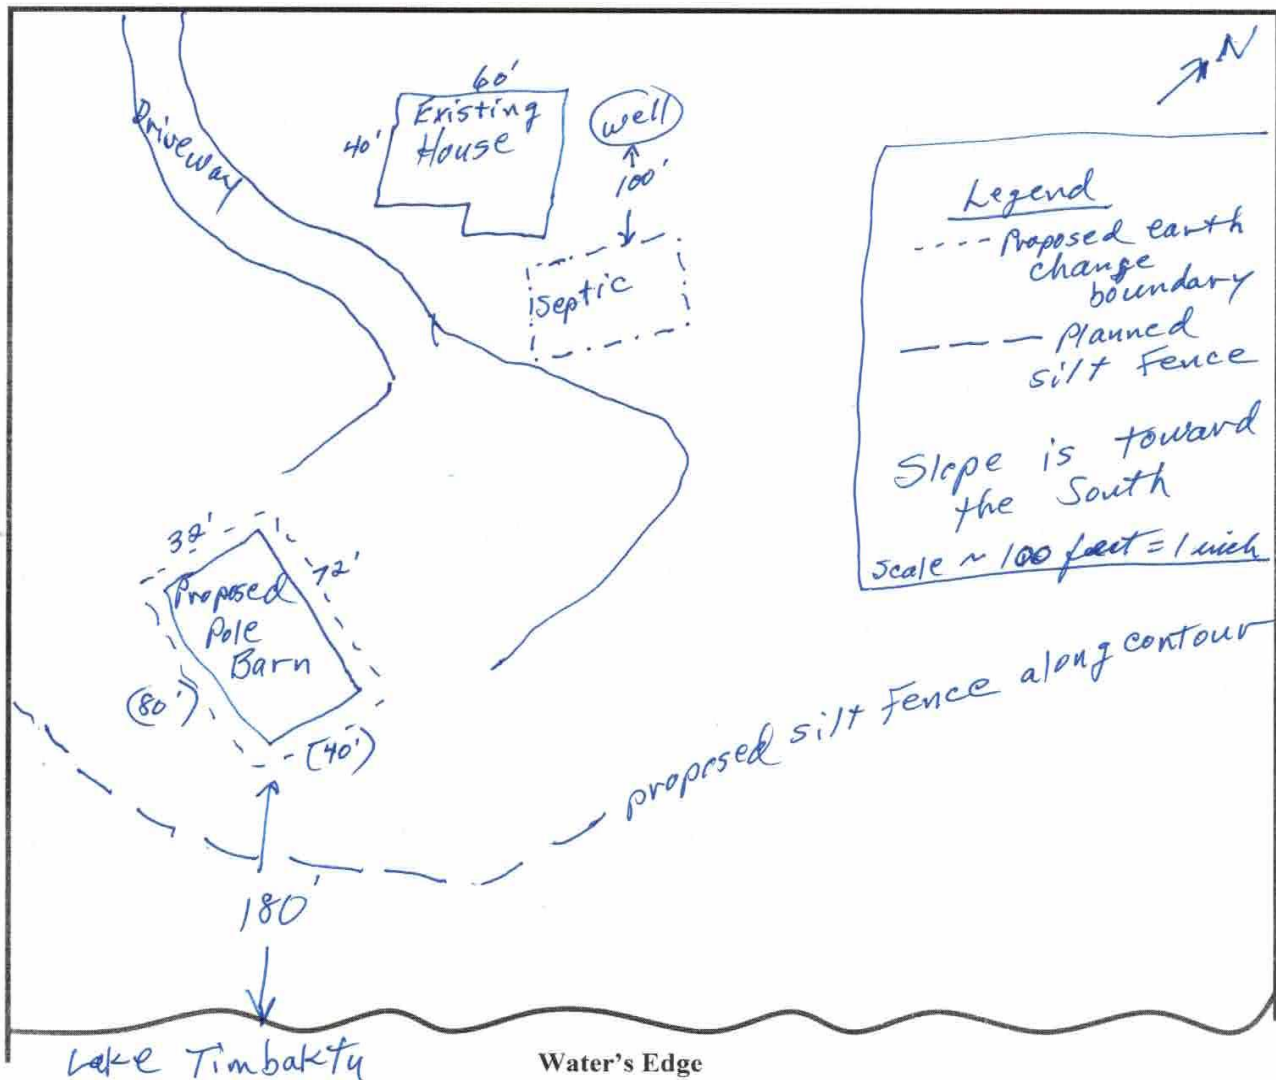 N
Driveway
60'
40'
Existing
House
well
100'
Septic
Legend
Proposed earth
change
boundary
Planned
silt Fence
Slope is toward
the South
Scale ~ 100 feet = 1 inch
32'
72'
Proposed
Pole
Barn
(80')
(40')
proposed silt Fence along contour
180'
Lake Timbakty
Water's Edge